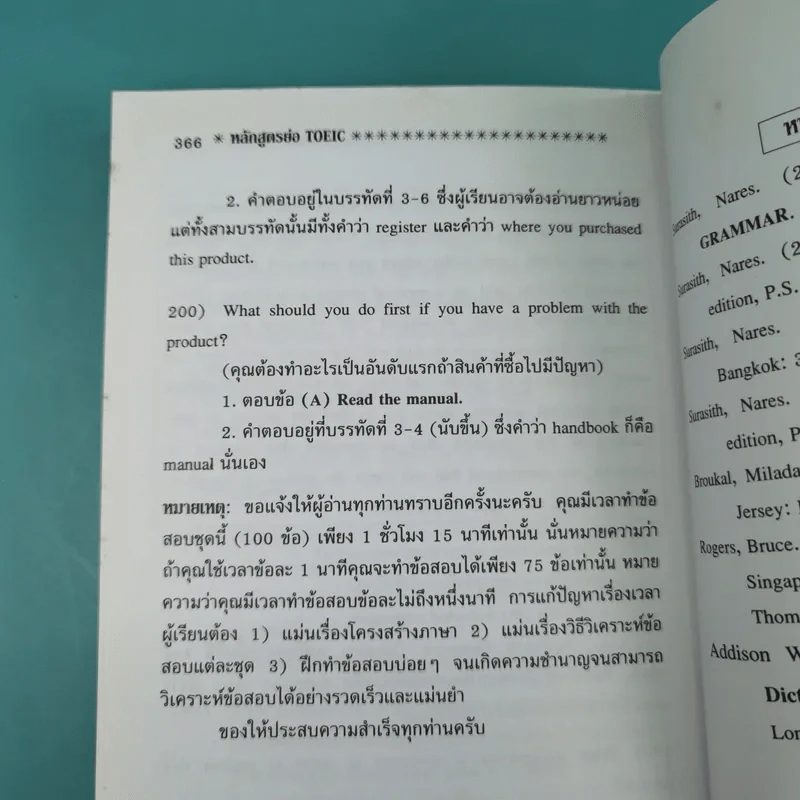 366 * หลักสูตรย่อ TOEIC *********************
2. คำตอบอยู่ในบรรทัดที่ 3-6 ซึ่งผู้เรียนอาจต้องอ่านยาวหน่อย
แต่ทั้งสามบรรทัดนั้นมีทั้งคำว่า register และคำว่า where you purchased
this product.
200) What should you do first if you have a problem with the
product?
(คุณต้องทำอะไรเป็นอันดับแรกถ้าสินค้าที่ซื้อไปมีปัญหา)
1. ตอบข้อ (A) Read the manual.
2. คำตอบอยู่ที่บรรทัดที่ 3-4 (นับขึ้น) ซึ่งคำว่า handbook ก็คือ
manual นั่นเอง
หมายเหตุ: ขอแจ้งให้ผู้อ่านทุกท่านทราบอีกครั้งนะครับ คุณมีเวลาทำข้อ
สอบชุดนี้ (100 ข้อ) เพียง 1 ชั่วโมง 15 นาทีเท่านั้น นั่นหมายความว่า
ถ้าคุณใช้เวลาข้อละ 1 นาทีคุณจะทำข้อสอบได้เพียง 75 ข้อเท่านั้น หมาย
ความว่าคุณมีเวลาทำข้อสอบข้อละไม่ถึงหนึ่งนาที การแก้ปัญหาเรื่องเวลา
ผู้เรียนต้อง 1) แม่นเรื่องโครงสร้างภาษา 2) แม่นเรื่องวิธีวิเคราะห์ข้อ
สอบแต่ละชุด 3) ฝึกทำข้อสอบบ่อยๆ จนเกิดความชำนาญจนสามารถ
วิเคราะห์ข้อสอบได้อย่างรวดเร็วและแม่นยำ
ของให้ประสบความสำเร็จทุกท่านครับ
Surasith, Nares. (2
GRAMMAR.
Surasith, Nares. (2
edition, P.S.
Surasith, Nares.
Bangkok: 3
Surasith, Nares.
edition, P
Broukal, Milada
Jersey:
Rogers, Bruce.
Singap
Thom
Addison W
Dict
Lon